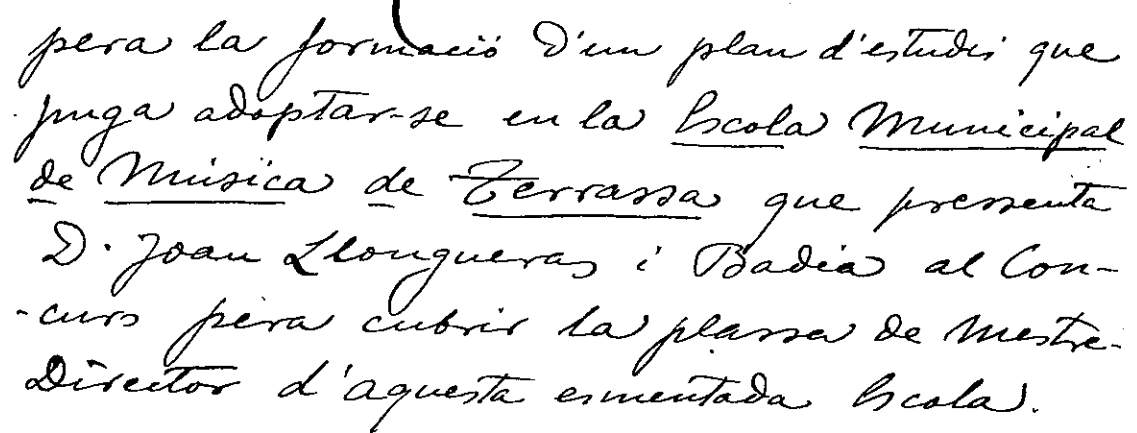 pera la formació d'un plan d'estudis que
puga adoptar-se en la Escola Municipal
de Música de Terrassa que pressenta
D. Joan Llongueras i Badia al Con-
-curs pera cubrir la plassa de Mestre-
Director d'aquesta esmentada Escola.